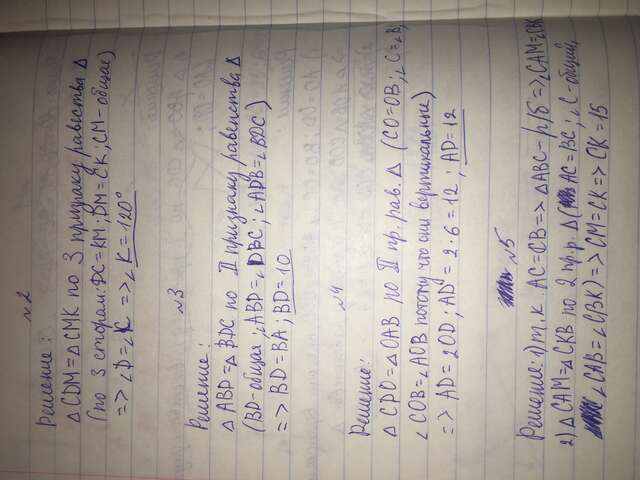 №2
Решение:
△ CDM = △ CMK по 3 признаку равества △
(по 3 сторам: DC = KM; DM = CK; CM - общая)
=> ∠D = ∠K => ∠K = 120°
№3
Решение:
△ ABD = △ BDC по II признаку равенства △
(BD - общая; ∠ABD = ∠DBC; ∠ADB = ∠BDC)
=> BD = BA; BD = 10
№4
Решение:
△ CDO = △ OAB по II пр. рав. △ (CO = OB; ∠C = ∠B,
∠COB = ∠AOB потому что они вертикальные)
=> AD = 2OD; AD = 2·6 = 12; AD = 12
№5
Решение: 1) т.к. AC = CB => △ABC - р/б => ∠CAM = ∠CBK
2) △ CAM = △ CKB по 2 пр.р. △ (AC = BC; ∠C - общий,
∠CAB = ∠CBK) => CM = CK => CK = 15